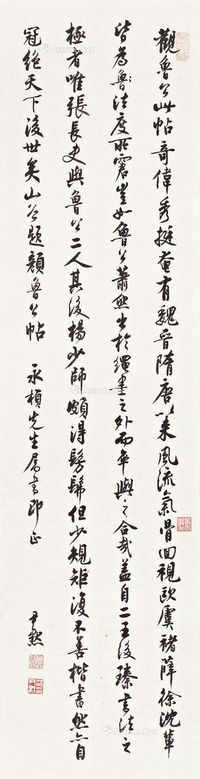 觀魯公此帖奇偉秀挺奄有魏晉隋唐以來風流氣骨回視歐虞褚薛徐沈輩
皆為魯法度所窘豈如魯公蕭然出於繩墨之外而卒與之合哉蓋自二王後臻書法之
極者唯張長史與魯公二人其後楊少師頗得髣髴但少規矩復不善楷書然亦自
冠絕天下後世矣山谷題顏魯公帖 先生屬書即正
尹默